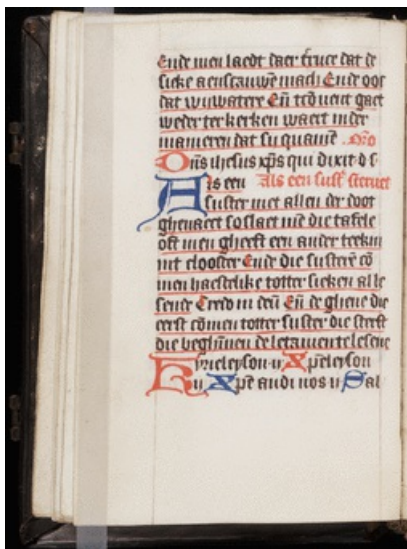 Ende men laedt daer truce dat de
sieke aenscauwē mach Ende oor
dat wywatere Eñ tcōuent gaet
weder ter kerken waert in der
manieren dat sy quamē . Oro
Oñs ihesus xp̄s qui dixit d s
Als een Als een sust' steruet
suster met allen der doot
ghenaect so slaet mē die tafele
oft men gheeft een ander teekin
int clooster Ende die susterē cō
men haestelike totter sieken al le
sende Credo in deū Eñ de ghene die
eerst cōmen totter suster die sterft
die beghīnen de letanien te lesene
Kyrieleyson ii Xp̄eleyson
ii Xp̄e audi nos ii Sal